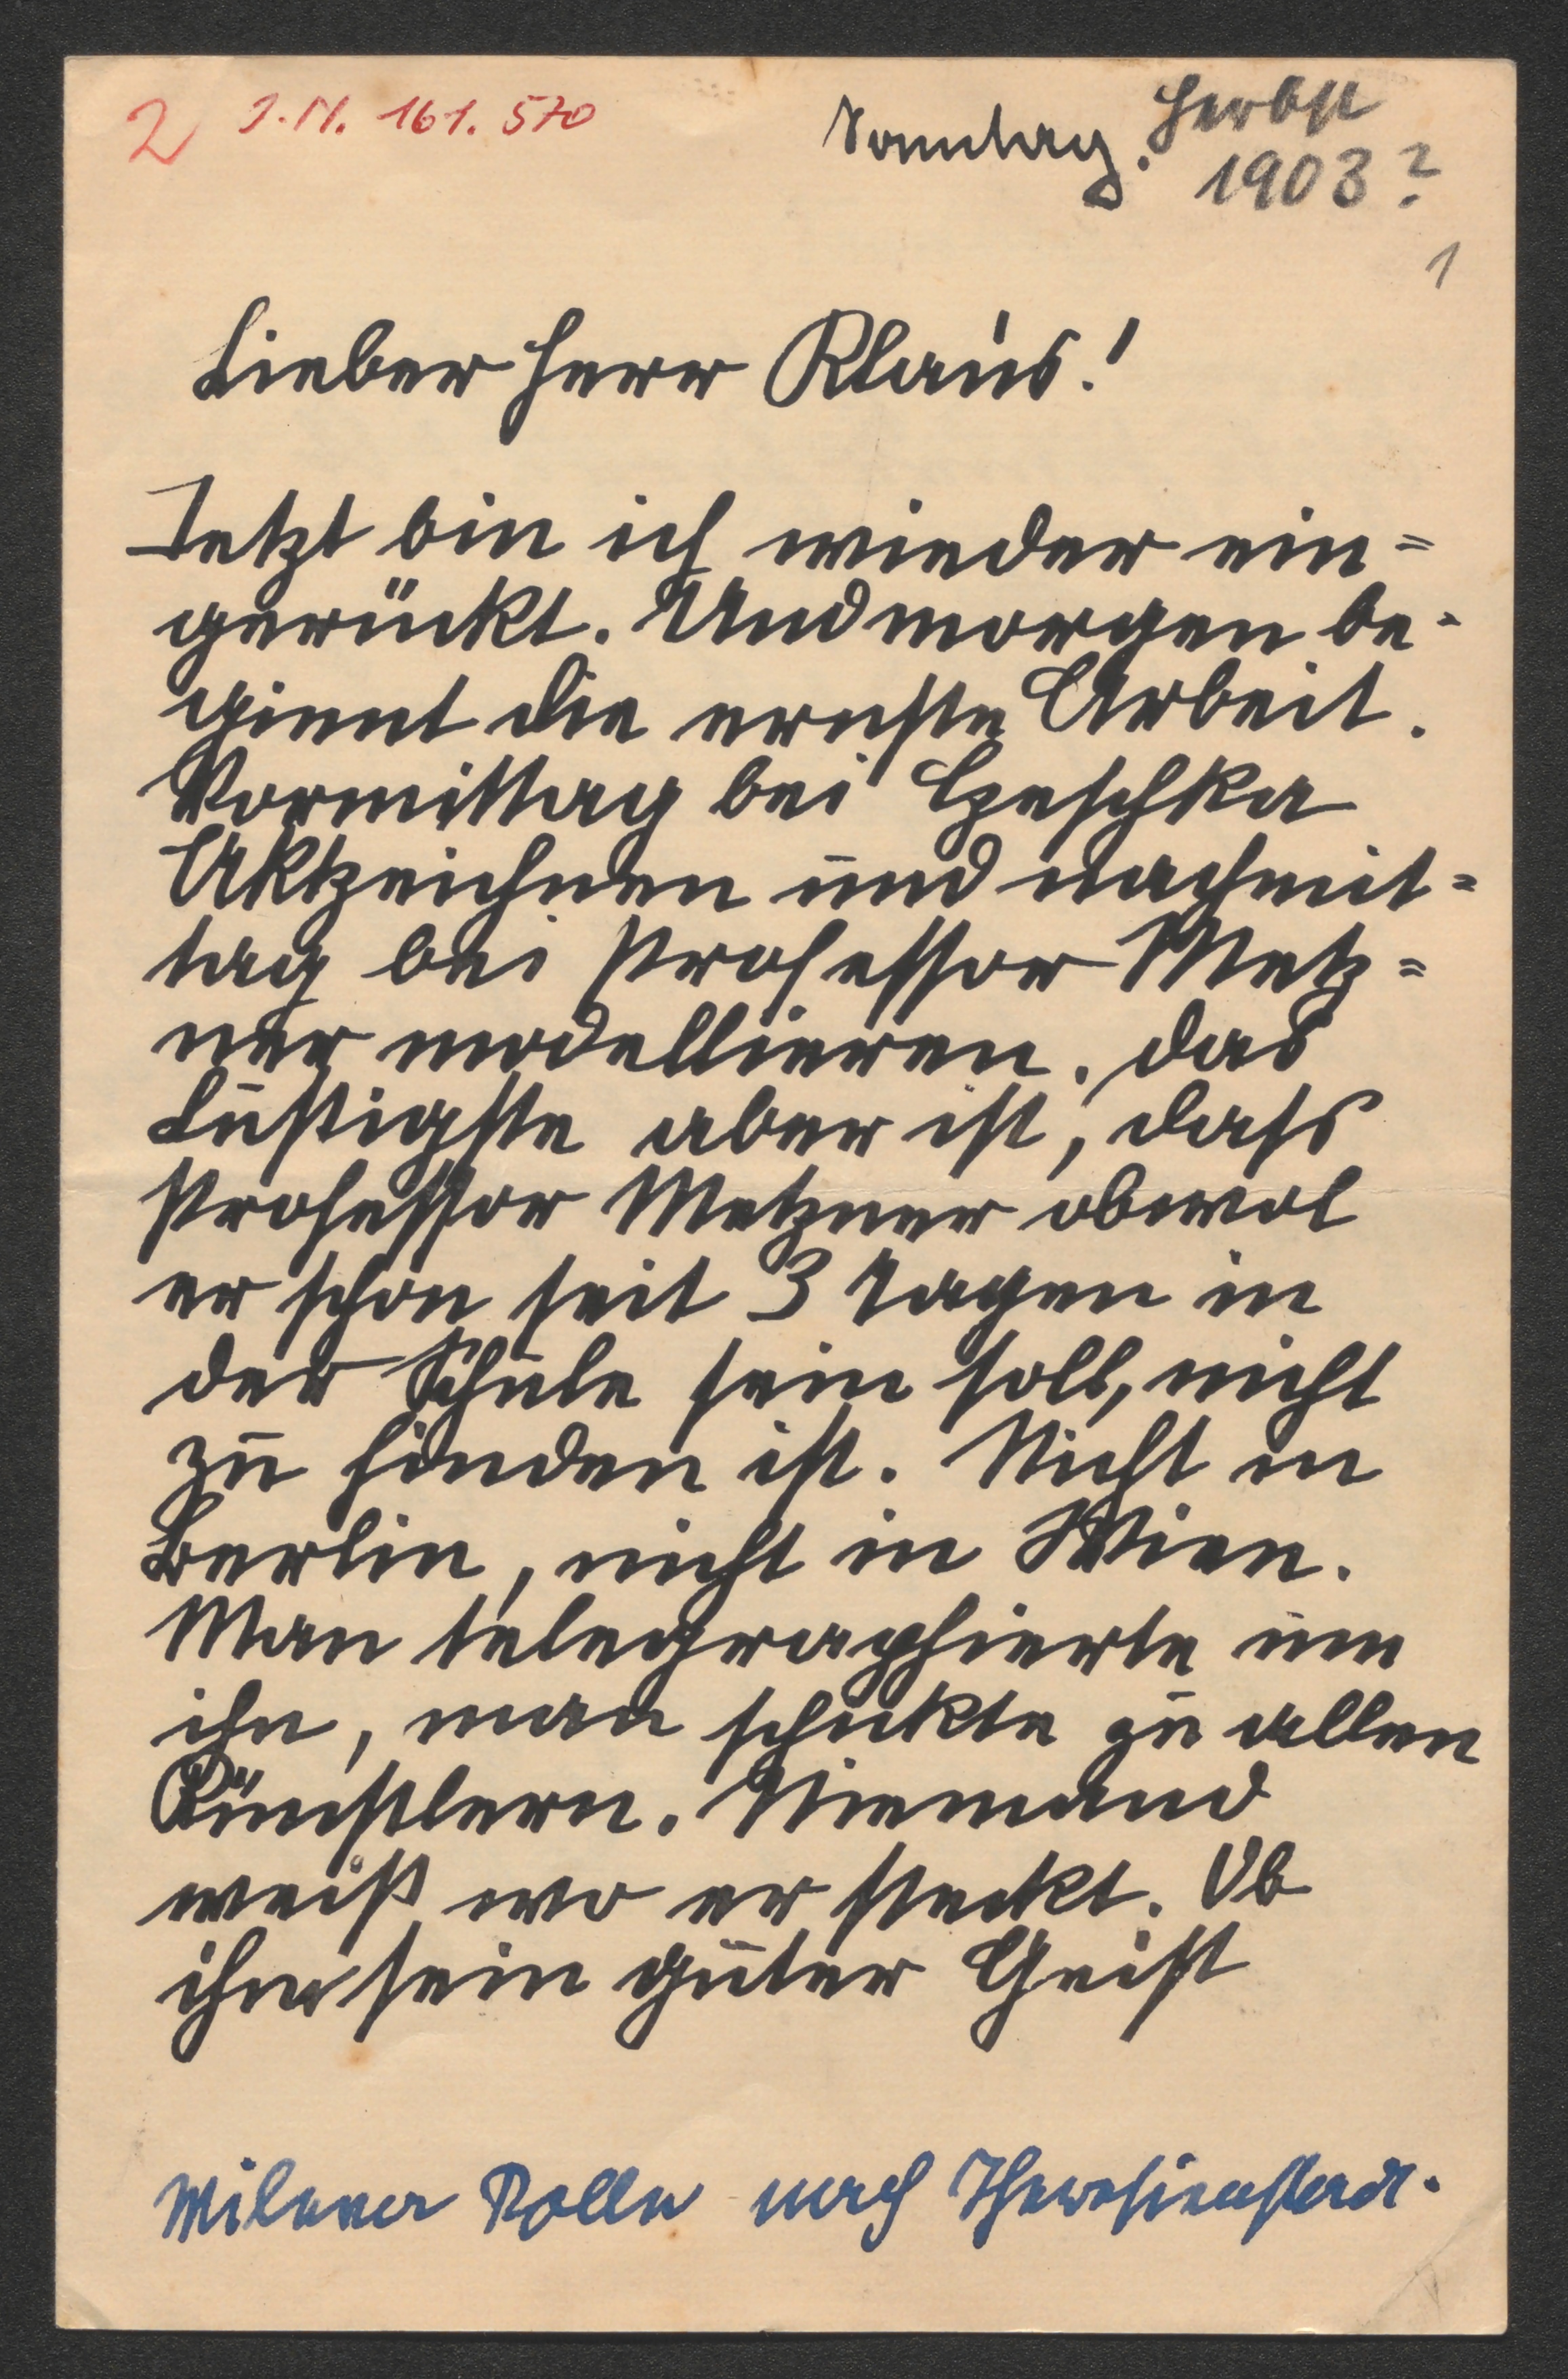 2 J.N. 161.570
Sonntag. Herbst
1903?
1
Lieber Herr Klaus!
Jetzt bin ich wieder ein=
gerückt. Und morgen be-
ginnt die ernste Arbeit.
Vormittag bei Czeschka
Aktzeichnen und nachmit=
tag bei Professor Metz=
ner modellieren. Das
Lustigste aber ist, dass
Professor Metzner obwol
er schon seit 3 Tagen in
der Schule sein soll, nicht
zu finden ist. Nicht in
Berlin, nicht in Wien.
Man telegraphierte um
ihn, man schickte zu allen
Künstlern. Niemand
weiß wo er steckt. Ob
ihm sein guter Geist
Rolle nach Theresienstadt.